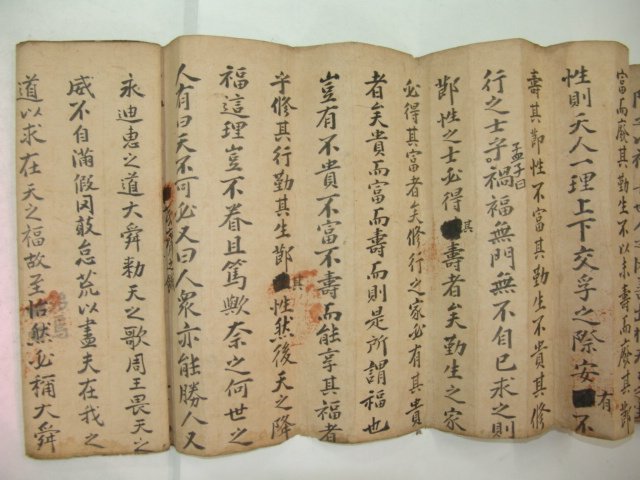 富而廢其勤生不以末壽而廢其節
性則天人一理上下交孚之際安有不
壽其節性不富其勤生不貴其修
行之士乎孟子曰禍福無門無不自已求之則
節性之士必得其壽者矣勤生之家
必得其富者矣修行之家必有其貴
者矣貴而富而壽而則是所謂福也
豈有不貴不富不壽而能享其福者
乎修其行勤其生節其性然後天之降
福這理豈不眷且篤歟奈之何世之
人有曰天不可必又曰人衆亦能勝人又
永迪惠之道大舜勅天之歌周王畏天之
威不自滿假罔敢怠荒以盡夫在我之
道以求在天之福故至怡然必稱大舜